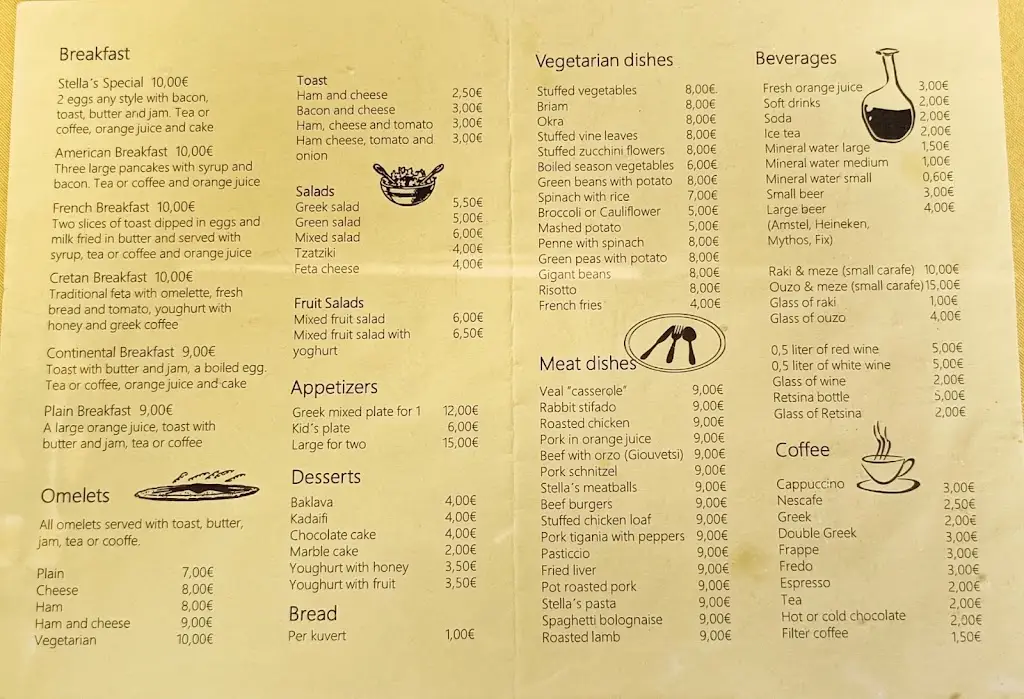 Breakfast
Stella's Special 10,00€
2 eggs any style with bacon,
toast, butter and jam. Tea or
coffee, orange juice and cake
American Breakfast 10,00€
Three large pancakes with syrup and
bacon. Tea or coffee and orange juice
French Breakfast 10,00€
Two slices of toast dipped in eggs and
milk fried in butter and served with
syrup, tea or coffee and orange juice
Cretan Breakfast 10,00€
Traditional feta with omelette, fresh
bread and tomato, youghurt with
honey and greek coffee
Continental Breakfast 9,00€
Toast with butter and jam, a boiled egg.
Tea or coffee, orange juice and cake
Plain Breakfast 9,00€
A large orange juice, toast with
butter and jam, tea or coffee
Omelets
All omelets served with toast, butter,
jam, tea or cooffe.
Plain 7,00€
Cheese 8,00€
Ham 8,00€
Ham and cheese 9,00€
Vegetarian 10,00€
Toast
Ham and cheese 2,50€
Bacon and cheese 3,00€
Ham, cheese and tomato 3,00€
Ham cheese, tomato and 3,00€
onion
Salads
Greek salad 5,50€
Green salad 5,00€
Mixed salad 6,00€
Tzatziki 4,00€
Feta cheese 4,00€
Fruit Salads
Mixed fruit salad 6,00€
Mixed fruit salad with 6,50€
yoghurt
Appetizers
Greek mixed plate for 1 12,00€
Kid's plate 6,00€
Large for two 15,00€
Desserts
Baklava 4,00€
Kadaifi 4,00€
Chocolate cake 4,00€
Marble cake 2,00€
Youghurt with honey 3,50€
Youghurt with fruit 3,50€
Bread
Per kuvert 1,00€
Vegetarian dishes
Stuffed vegetables 8,00€
Briam 8,00€
Okra 8,00€
Stuffed vine leaves 8,00€
Stuffed zucchini flowers 8,00€
Boiled season vegetables 6,00€
Green beans with potato 8,00€
Spinach with rice 7,00€
Broccoli or Cauliflower 5,00€
Mashed potato 5,00€
Penne with spinach 8,00€
Green peas with potato 8,00€
Gigant beans 8,00€
Risotto 8,00€
French fries 4,00€
Meat dishes
Veal "casserole" 9,00€
Rabbit stifado 9,00€
Roasted chicken 9,00€
Pork in orange juice 9,00€
Beef with orzo (Giouvetsi) 9,00€
Pork schnitzel 9,00€
Stella's meatballs 9,00€
Beef burgers 9,00€
Stuffed chicken loaf 9,00€
Pork tigania with peppers 9,00€
Pasticcio 9,00€
Fried liver 9,00€
Pot roasted pork 9,00€
Stella's pasta 9,00€
Spaghetti bolognaise 9,00€
Roasted lamb 9,00€
Beverages
Fresh orange juice 3,00€
Soft drinks 2,00€
Soda 2,00€
Ice tea 2,00€
Mineral water large 1,50€
Mineral water medium 1,00€
Mineral water small 0,60€
Small beer 3,00€
Large beer 4,00€
(Amstel, Heineken,
Mythos, Fix)
Raki & meze (small carafe) 10,00€
Ouzo & meze (small carafe) 15,00€
Glass of raki 1,00€
Glass of ouzo 4,00€
0,5 liter of red wine 5,00€
0,5 liter of white wine 5,00€
Glass of wine 2,00€
Retsina bottle 5,00€
Glass of Retsina 2,00€
Coffee
Cappuccino 3,00€
Nescafe 2,50€
Greek 2,00€
Double Greek 3,00€
Frappe 3,00€
Fredo 3,00€
Espresso 2,00€
Tea 2,00€
Hot or cold chocolate 2,00€
Filter coffee 1,50€